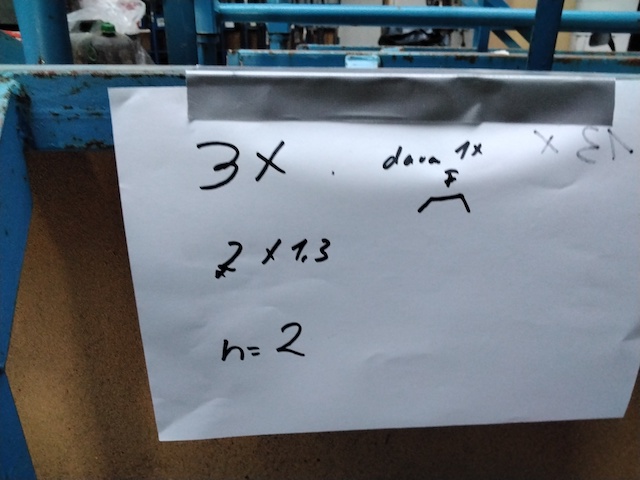 3x
dava 1x
13 x
2 x 1,3
n=2